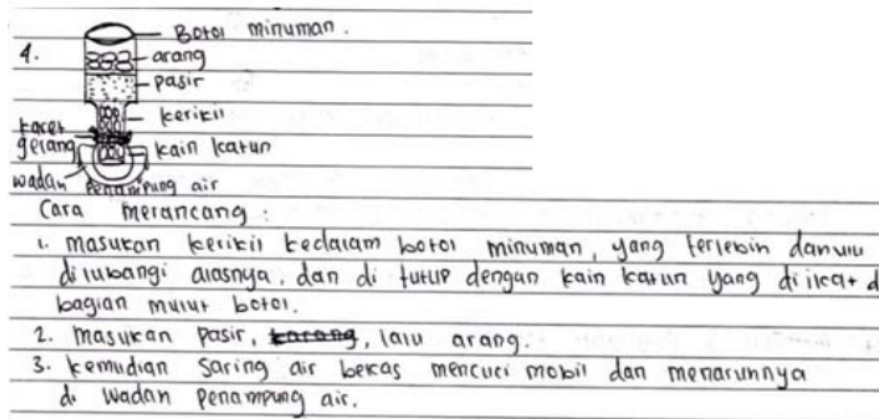 4.
Botol minuman.
arang
pasir
kerikil
karet gelang
kain katun
wadah penampung air
Cara merancang :
1. masukan kerikil kedalam botol minuman, yang terlebih dahulu
di lubangi alasnya, dan di tutup dengan kain katun yang di ikat d
bagian mulut botol.
2. masukan pasir, karang, lalu arang.
3. kemudian saring air bekas mencuci mobil dan menaruhnya
di wadah penampung air.